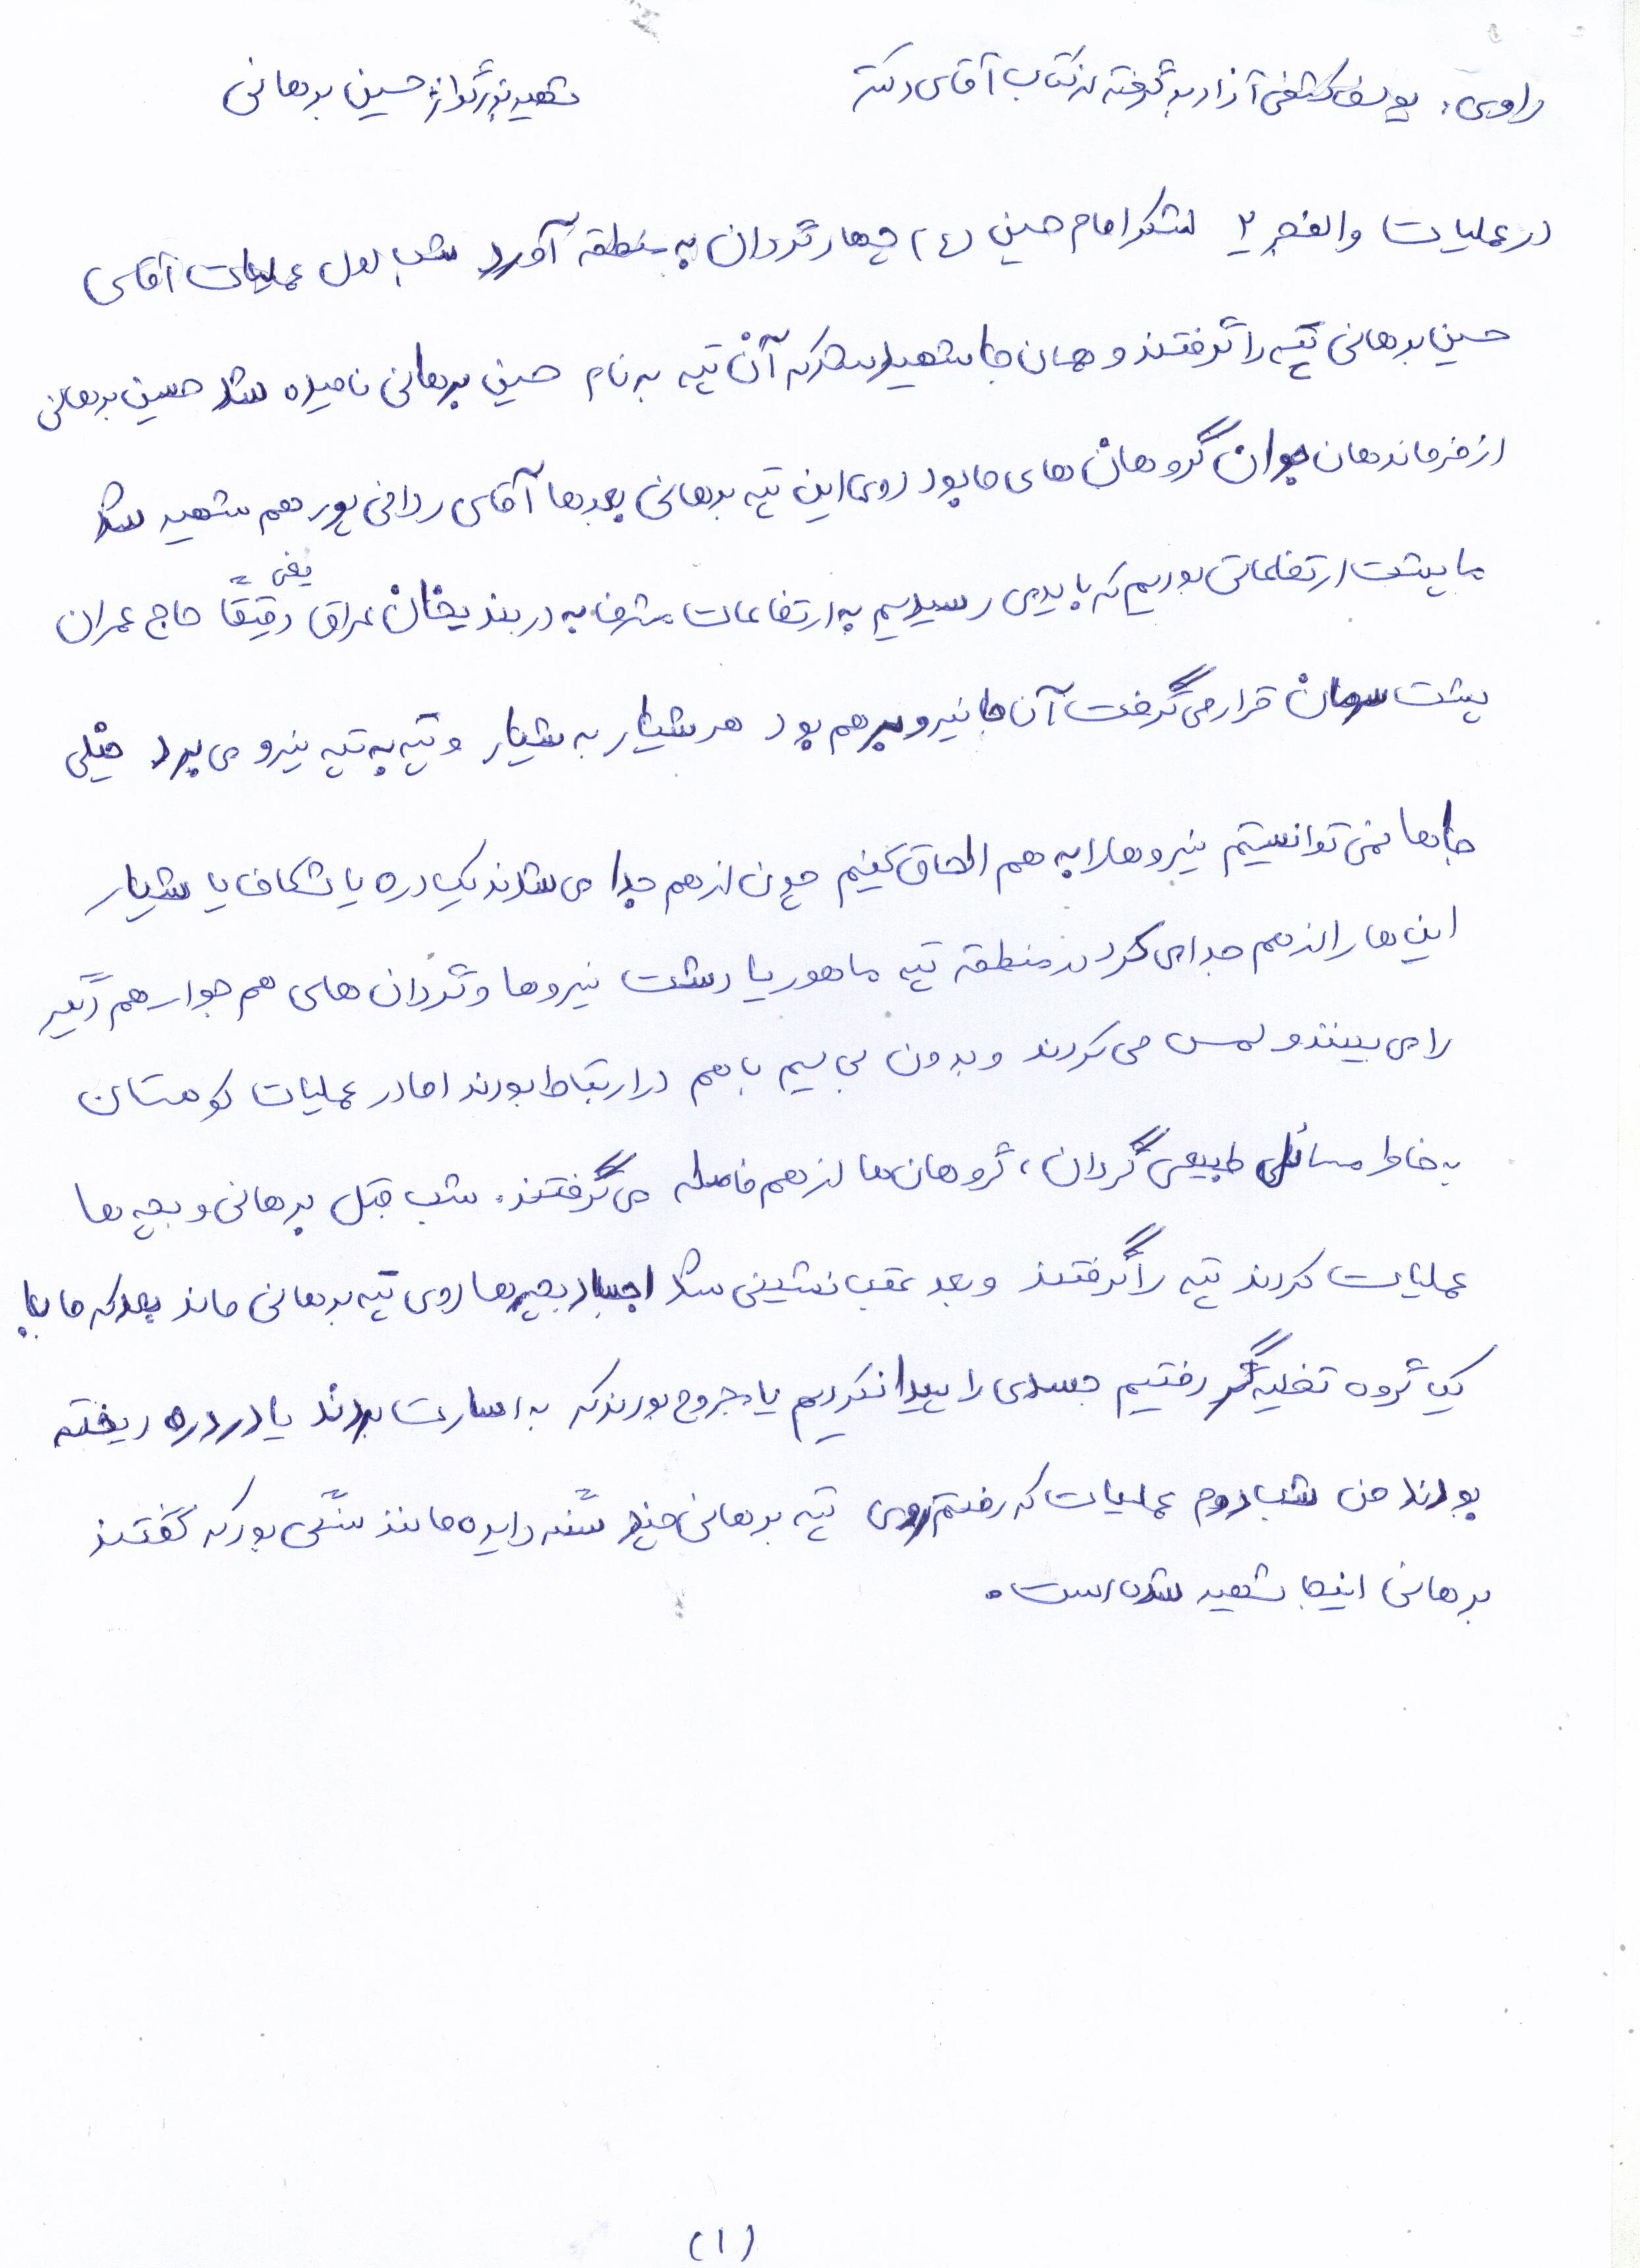 راوی: یوسف کشفی آزاد برگرفته از کتاب آقای دکتر
شهید بزرگوار حسین برهانی
در عملیات والفجر ۲ لشکر امام حسین (ع) چهار گردان به منطقه آورد شب اول عملیات آقای
حسین برهانی تپه را گرفتند و همان جا شهید شد که آن تپه به نام حسین برهانی نامیده شد حسین برهانی
از فرماندهان جوان گروهان های ما بود روی این تپه برهانی بعدها آقای ردانی پور هم شهید شد
ما پشت ارتفاعاتی بودیم که باید می رسیدیم به ارتفاعات مشرف به دربندیخان عراق یعنی دقیقاً حاج عمران
پشت سرمان قرار می گرفت آن جا نیرو بر هم بود هر شیار به شیار و تپه به تپه نیرو می برد خیلی
جاها نمی توانستیم نیروها را به هم الحاق کنیم چون از هم جدا می شدند یک دره یا شکاف یا شیار
این ها را از هم جدا می کرد در منطقه تپه ماهور یا دشت نیروها و گردان های هم جوار هم دیگر
را می بینند و لمس می کردند و بدون بی سیم با هم در ارتباط بودند اما در عملیات کوهستان
به خاطر مسائل طبیعی گردان، گروهان ها از هم فاصله می گرفتند. شب قبل برهانی و بچه ها
عملیات کردند تپه را گرفتند و بعد عقب نشینی شد اجساد بچه ها روی تپه برهانی ماند بعد که ما با
یک گروه تخلیه گر رفتیم جسدی را پیدا نکردیم یا مجروح بودند که به اسارت بردند یا در دره ریخته
بودند من شب دوم عملیات که رفتم روی تپه برهانی چند سنگ دایره مانند سنگی بود که گفتند
برهانی اینجا شهید شده است.
(۱)